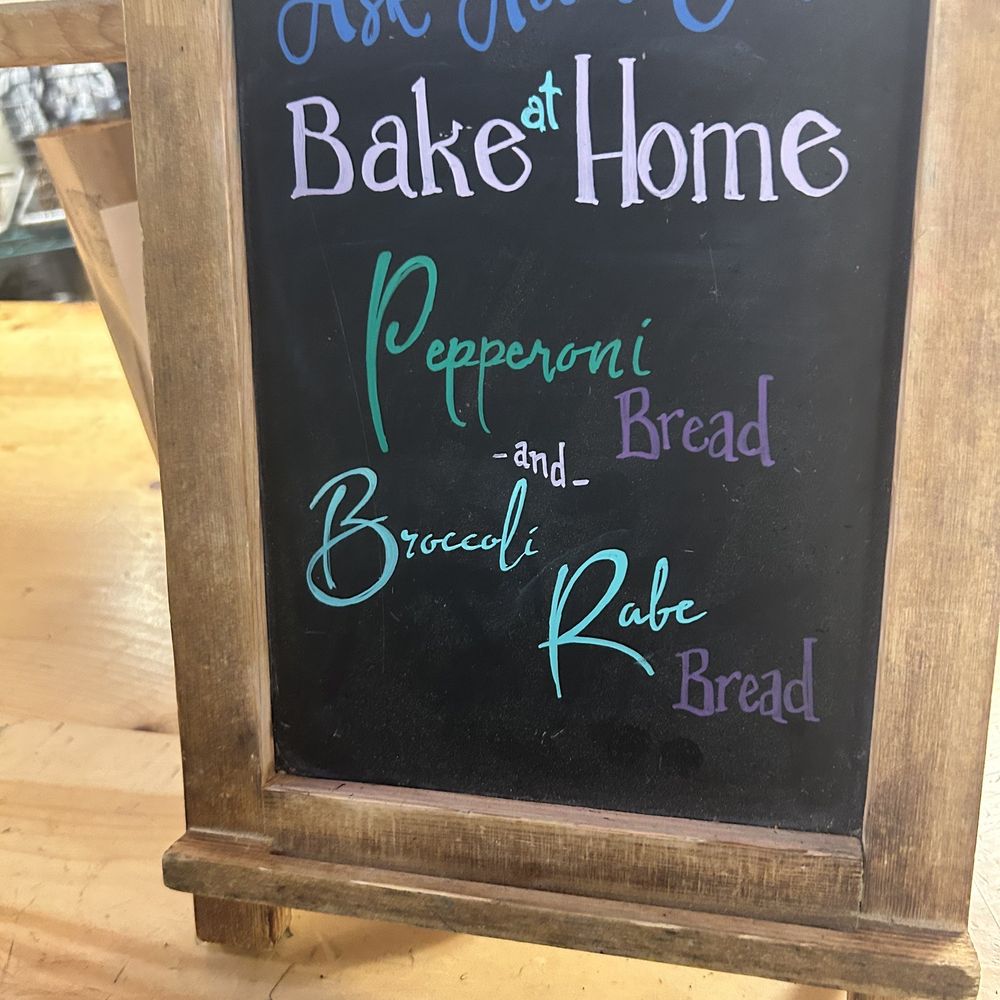 Ask
Bake at Home
Pepperoni
Bread
-and-
Broccoli
Rabe
Bread